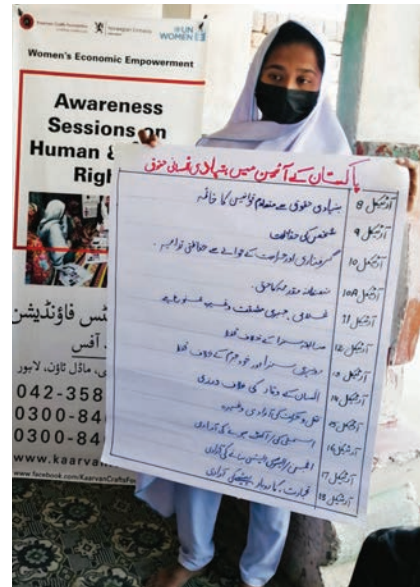 Kaarvan Crafts Foundation
Norwegian Embassy
UN
WOMEN
Women's Economic Empowerment
Awareness
Sessions on
Human &
Righ
فاؤنڈیشن
آفس
ماڈل ٹاؤن، لاہور
042-358
0300-84
0300-84
www.kaarvan
www.facebook.com/KaarvanCraftsFou
پاکستان کے آئین میں بنیادی انسانی حقوق
آرٹیکل 8 بنیادی حقوق سے متصادم قوانین کا خاتمہ
آرٹیکل 9 شخص کی حفاظت
آرٹیکل 10 گرفتاری اور حراست کے حوالے سے حفاظتی
آرٹیکل 10A منصفانہ مقدمہ کا حق۔
آرٹیکل 11 غلامی، جبری مشقت
آرٹیکل 12 سزا کے خلاف تحفظ
آرٹیکل 13 دوہری سزا اور خود جرم کے خلاف تحفظ
آرٹیکل 14 انسان کے وقار کی خلاف ورزی
آرٹیکل 15 نقل و حرکت کی آزادی وغیرہ
آرٹیکل 16 کی آزادی
آرٹیکل 17 انجمن سازی کی آزادی
آرٹیکل 18 تجارت، کاروبار کی آزادی